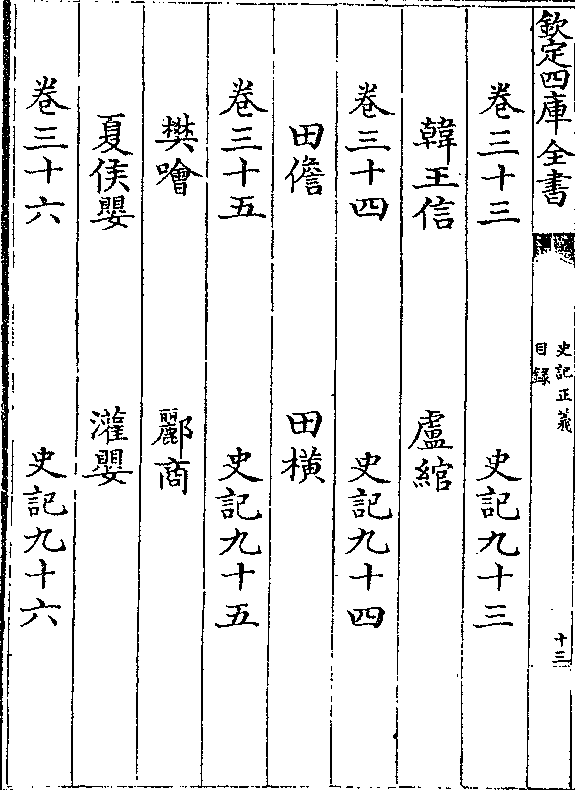 欽定四庫全書
史記正義
目録
十三
卷三十三 史記九十三
韓王信 盧綰
卷三十四 史記九十四
田儋 田横
卷三十五 史記九十五
樊噲 酈商
夏侯嬰 灌嬰
卷三十六 史記九十六